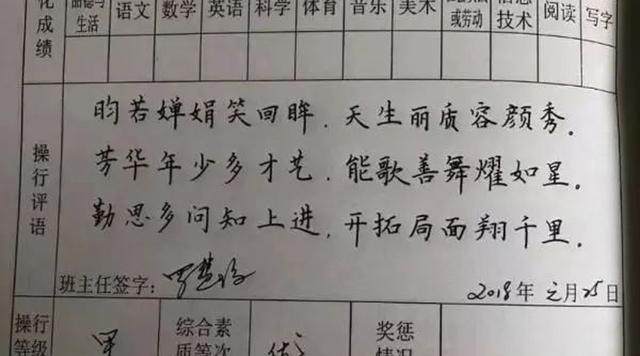 化成绩
品德与生活 语文 数学 英语 科学 体育 音乐 美术 或劳动 信息技术 阅读 写字
操行评语
昀若婵娟笑回眸，天生丽质容颜秀。
芳华年少多才艺，能歌善舞耀如星。
勤思多问知上进，开拓局面翔千里。
班主任签字：
2018年元月25日
操行等级 综合素质等次 优 奖惩情况